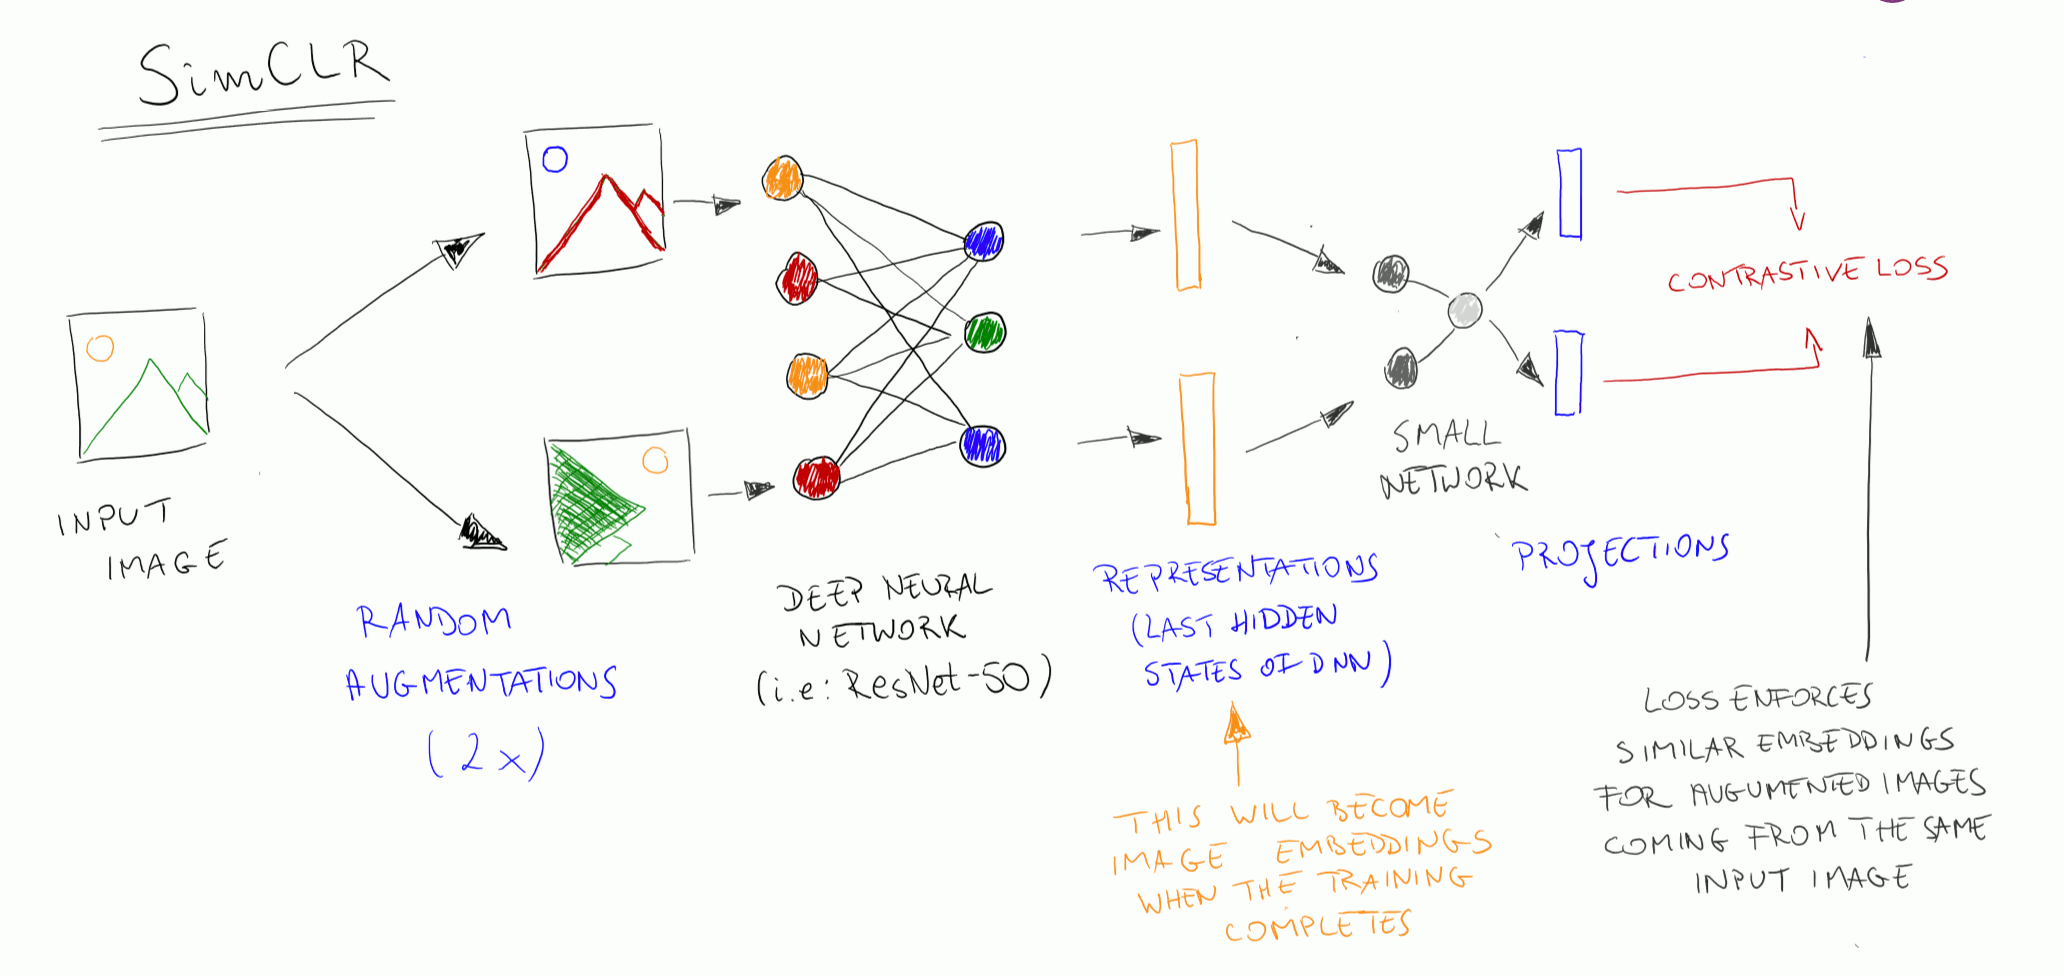 SimCLR
INPUT
IMAGE
RANDOM
AUGMENTATIONS
(2x)
DEEP NEURAL
NETWORK
(i.e: ResNet-50)
REPRESENTATIONS
(LAST HIDDEN
STATES OF DNN)
THIS WILL BECOME
IMAGE EMBEDDINGS
WHEN THE TRAINING
COMPLETES
SMALL
NETWORK
PROJECTIONS
CONTRASTIVE LOSS
LOSS ENFORCES
SIMILAR EMBEDDINGS
FOR AUGUMENTED IMAGES
COMING FROM THE SAME
INPUT IMAGE